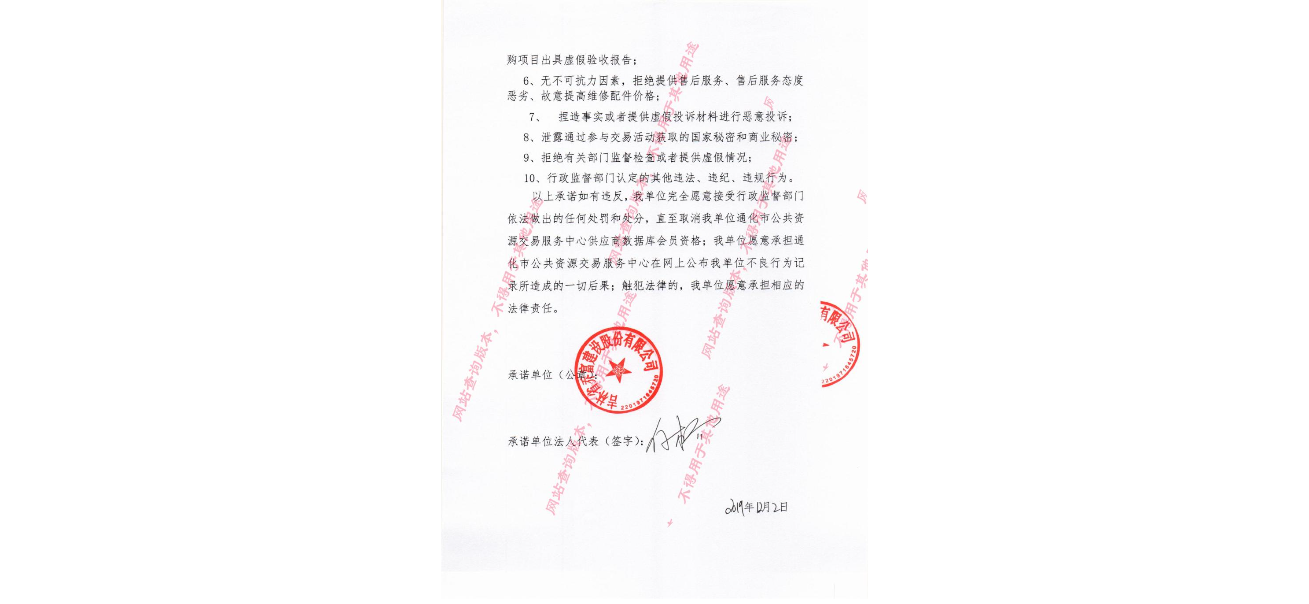 购项目出具虚假验收报告；
6、无不可抗力因素，拒绝提供售后服务、售后服务态度
恶劣、故意提高维修配件价格；
7、 捏造事实或者提供虚假投诉材料进行恶意投诉；
8、泄露通过参与交易活动获取的国家秘密和商业秘密；
9、拒绝有关部门监督检查或者提供虚假情况；
10、行政监督部门认定的其他违法、违纪、违规行为。
以上承诺如有违反，我单位完全愿意接受行政监督部门
依法做出的任何处罚和处分，直至取消我单位通化市公共资
源交易服务中心供应商数据库会员资格；我单位愿意承担通
化市公共资源交易服务中心在网上公布我单位不良行为记
录所造成的一切后果；触犯法律的，我单位愿意承担相应的
法律责任。
有限公司
建设股份有限公司
承诺单位（公章）：
承诺单位法人代表（签字）：
2019年12月2日
网站查询版本，不得用于其他用途
网站查询版本，不得用于其他用途
网站查询版本，不得用于其他用途
网站查询版本，不得用于其他用途
不得用于其他用途